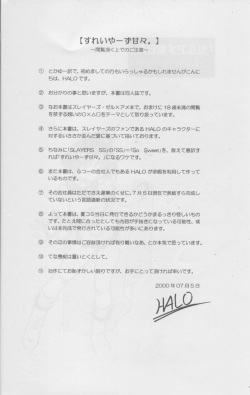 【すれいやーず甘々。】
～閲覧頂く上でのご注意～
① とかゆー訳で、初めましての方もいらっしゃるかもしれませんがこんに
ちは、HALOです。
② お分かりの事と思いますが、本書は同人誌です。
③ なお本書はスレイヤーズ・ゼル×アメまで、おまけに18歳未満の閲覧
を禁ずる類いの○×△□をテーマとして取り扱っています。
④ さらに本書は、スレイヤーズのファンであるHALOのキャラクターに
対する
に基づいて描いております。
⑤ ちなみに「SLAYERS SS」の「SS」=「So Sweet」を、敢えて意訳す
れば「すれいやーず甘々。」になるワケです。
⑥ また本書は、ふつーの会社人でもあるHALOが余暇を利用して作って
いるものです。
⑦ その会社員はただでさえ遅筆のくせに、7月5日現在で表紙すら完成し
ていないという
の状況です。
⑧ よって本書は、夏コミ当日に発行できるかどうかすらはっきり怪しいもの
です。たとえ間に合ったとしても内容が手抜きになっている可能性、或
いは未完成で発行されている可能性が多いにあります。
⑨ その辺の事情はご自身頂ければ有り難いなあ、とか本気で思っています。
⑩ てな愚痴は置いとくとして。
⑪ お手にてお恥ずかしい限りですが、お手にとって頂ければ幸いです。
2000年07月5日
HALO